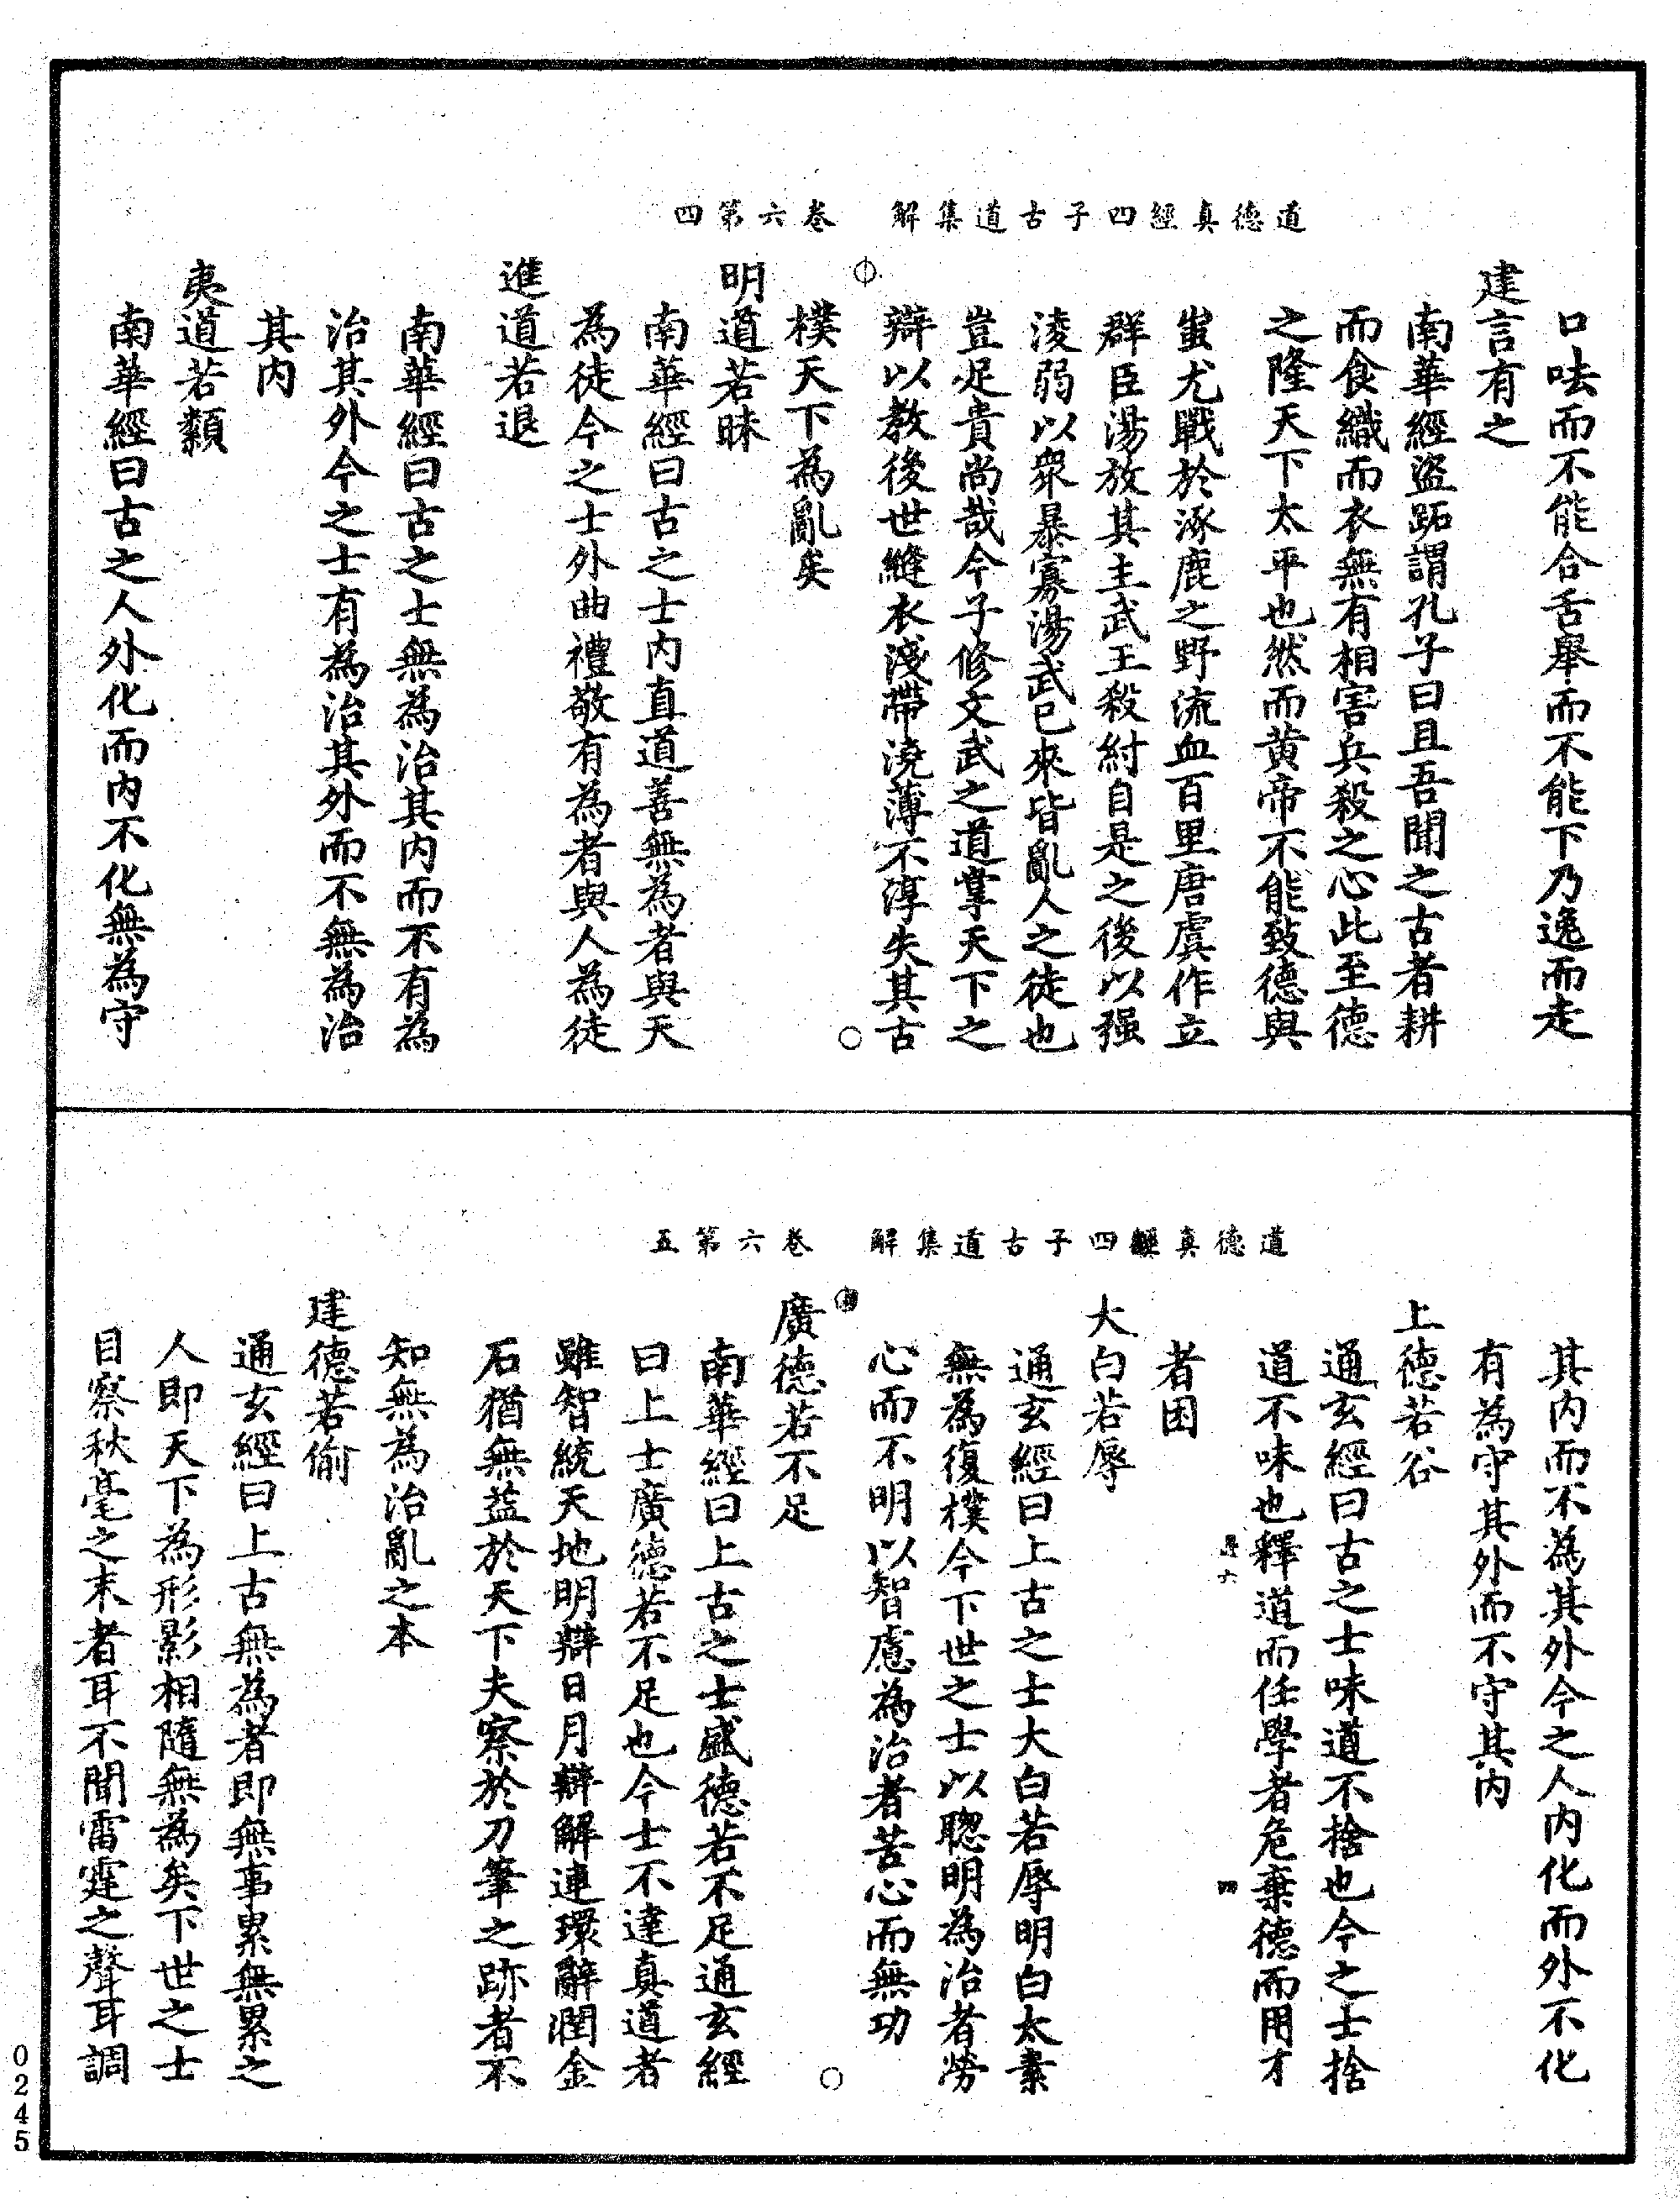 道德真經四子古道集解　卷六第四
口呿而不能合舌舉而不能下乃逸而走
建言有之
南華經盜跖謂孔子曰且吾聞之古者耕
而食織而衣無有相害兵殺之心此至德
之隆天下太平也然而黃帝不能致德與
蚩尤戰於涿鹿之野流血百里唐虞作立
群臣湯放其主武王殺紂自是之後以强
淩弱以眾暴寡湯武已來皆亂人之徒也
豈足貴尚哉今子修文武之道掌天下之
辯以教後世縫衣淺帶澆薄不淳失其古
樸天下為亂矣
明道若昧
南華經曰古之士內直道善無為者與天
為徒今之士外曲禮敬有為者與人為徒
進道若退
南華經曰古之士無為治其內而不有為
治其外今之士有為治其外而不無為治
其內
夷道若纇
南華經曰古之人外化而內不化無為守
道德真經四子古道集解　卷六第五
其內而不為其外今之人內化而外不化
有為守其外而不守其內
上德若谷
通玄經曰古之士味道不捨也今之士捨
道不味也釋道而任學者危棄德而用才
者困
大白若辱
通玄經曰上古之士大白若辱明白太素
無為復樸今下世之士以聰明為治者勞
心而不明以智慮為治者苦心而無功
廣德若不足
南華經曰上古之士盛德若不足通玄經
曰上士廣德若不足也今士不達真道者
雖智統天地明辯日月辯解連環辭潤金
石猶無益於天下夫察於刀筆之跡者不
知無為治亂之本
建德若偷
通玄經曰上古無為者即無事累無累之
人即天下為形影相隨無為矣下世之士
目察秋毫之末者耳不聞雷霆之聲耳調
0245